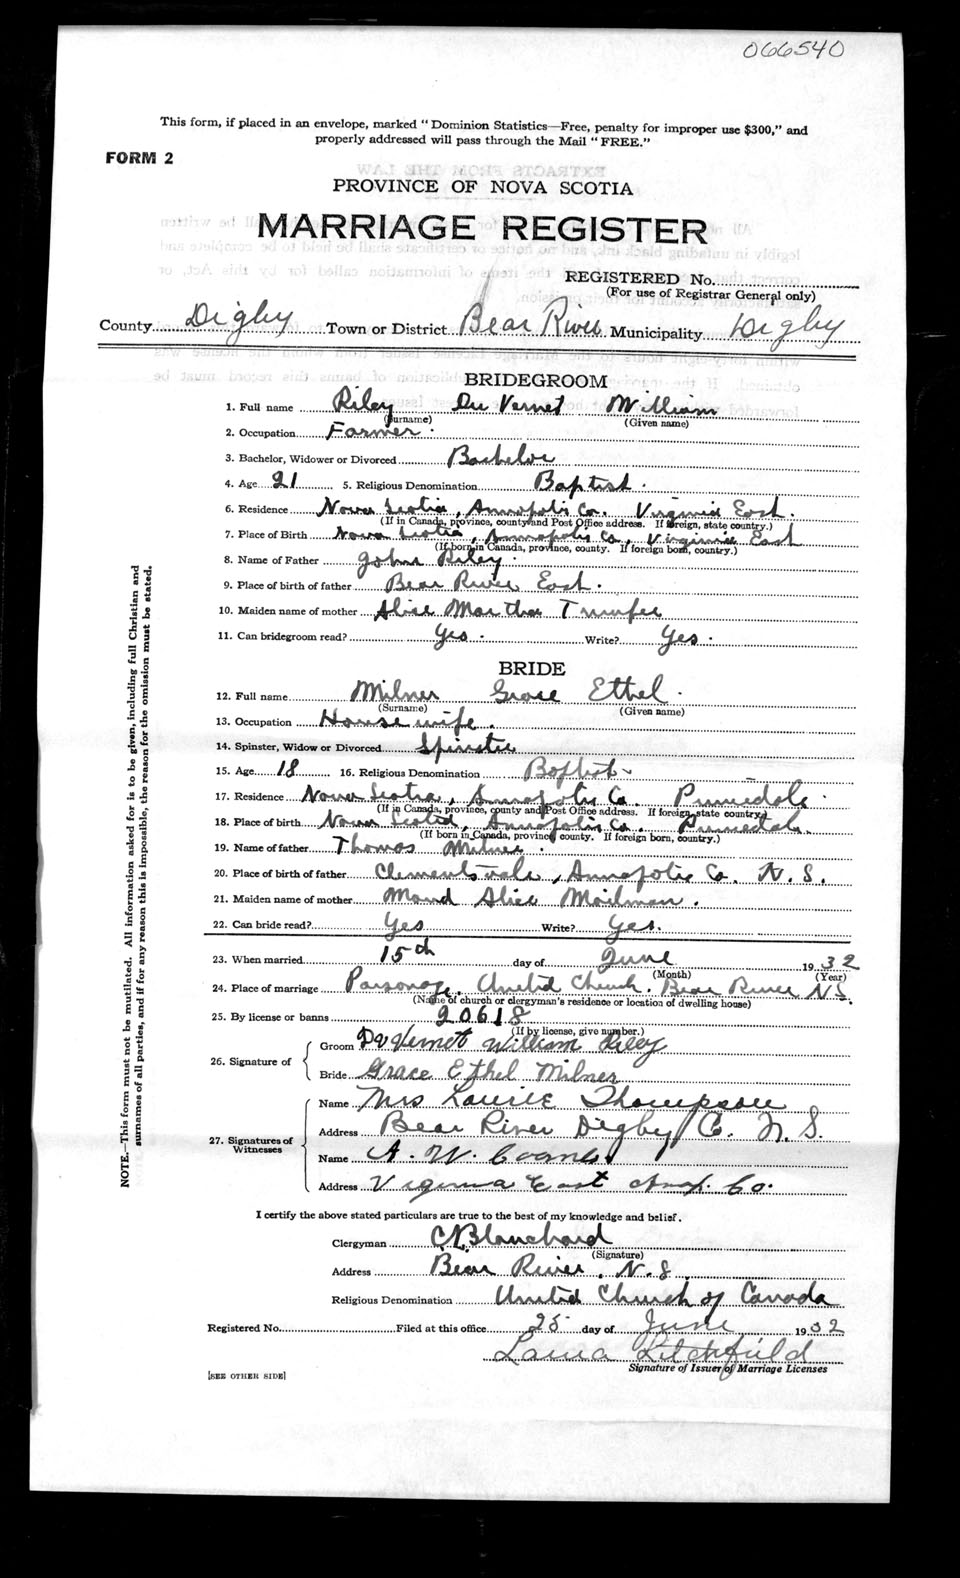 066540
This form, if placed in an envelope, marked "Dominion Statistics—Free, penalty for improper use $300," and
properly addressed will pass through the Mail "FREE."
FORM 2
PROVINCE OF NOVA SCOTIA
MARRIAGE REGISTER
REGISTERED No.
(For use of Registrar General only)
County Digby Town or District Bear River Municipality Digby
BRIDEGROOM
1. Full name Riley Du Vernet William
(Surname) (Given name)
2. Occupation Farmer.
3. Bachelor, Widower or Divorced Bachelor
4. Age 21 5. Religious Denomination Baptist.
6. Residence Nova Scotia, Annapolis Co. Virginia East.
(If in Canada, province, county and Post Office address. If foreign, state country.)
7. Place of Birth Nova Scotia, Annapolis Co, Virginia East
(If born in Canada, province, county. If foreign born, country.)
8. Name of Father John Riley.
9. Place of birth of father Bear River East.
10. Maiden name of mother Alice Martha
11. Can bridegroom read? Yes. Write? Yes.
BRIDE
12. Full name Milner Grace Ethel.
(Surname) (Given name)
13. Occupation House wife.
14. Spinster, Widow or Divorced Spinster
15. Age 18 16. Religious Denomination Baptist
17. Residence Nova Scotia, Annapolis Co. Princedale.
(If in Canada, province, county and Post Office address. If foreign, state country.)
18. Place of birth Nova Scotia, Annapolis Co. Princedale.
(If born in Canada, province, county. If foreign born, country.)
19. Name of father Thomas Milner.
20. Place of birth of father Clementsvale, Annapolis Co. N. S.
21. Maiden name of mother Maud Alice Mailman.
22. Can bride read? Yes Write? Yes.
23. When married 15th day of June 1932
(Month) (Year)
24. Place of marriage Parsonage, United Church. Bear River N.S.
(Name of church or clergyman's residence or location of dwelling house)
25. By license or banns 20618
(If by license, give number.)
26. Signature of
Groom DuVernet William Riley
Bride Grace Ethel Milner
27. Signatures of Witnesses
Name Mrs Laurie Thompson
Address Bear River Digby Co. N. S.
Name A. W.
Address Virginia East Anap. Co.
I certify the above stated particulars are true to the best of my knowledge and belief.
Clergyman Blanchard
(Signature)
Address Bear River, N.S.
Religious Denomination United Church of Canada
Registered No. Filed at this office 25 day of June 1932
Laura Litchfield
Signature of Issuer of Marriage Licenses
[SEE OTHER SIDE]
NOTE.—This form must not be mutilated. All information asked for is to be given, including full Christian and
surnames of all parties, and if for any reason this is impossible, the reason for the omission must be stated.